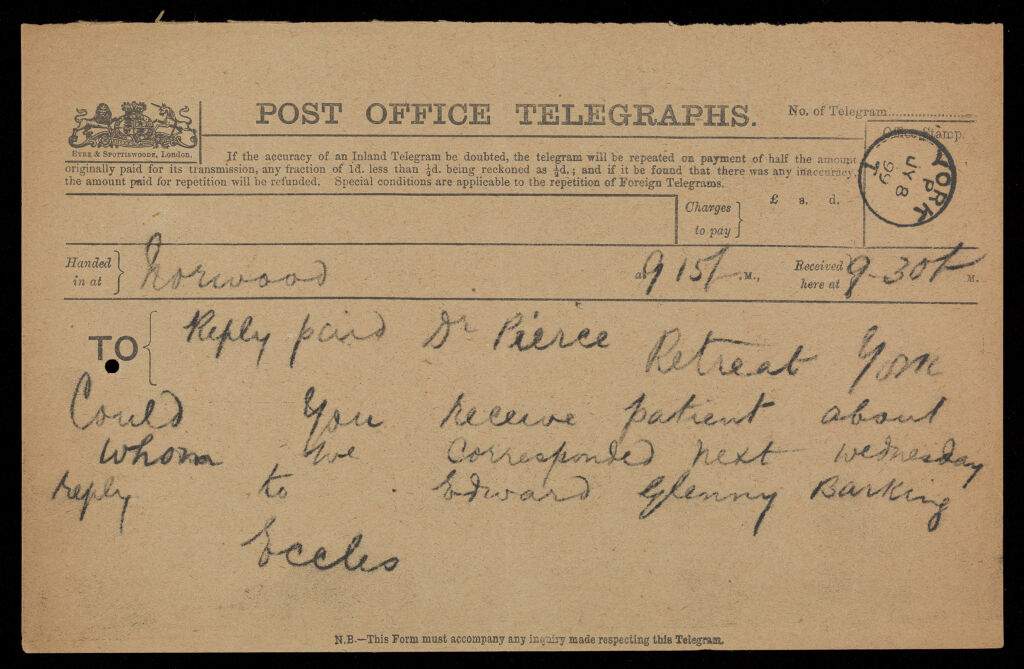 POST OFFICE TELEGRAPHS.
No. of Telegram
EYRE & SPOTTISWOODE, LONDON.
Office Stamp.
If the accuracy of an Inland Telegram be doubted, the telegram will be repeated on payment of half the amount
originally paid for its transmission, any fraction of 1d. less than ½d. being reckoned as ½d.; and if it be found that there was any inaccuracy,
the amount paid for repetition will be refunded. Special conditions are applicable to the repetition of Foreign Telegrams.
YORK
P
JY 8
99
Charges to pay } £ s. d.
Handed in at } Norwood at 9 15 M., Received here at } 9-30 M.
TO { Reply paid Dr Pierce Retreat York
Could You receive patient about
whom we corresponded next wednesday
reply to Edward Glenny Barking
Eccles
N.B.—This Form must accompany any inquiry made respecting this Telegram.